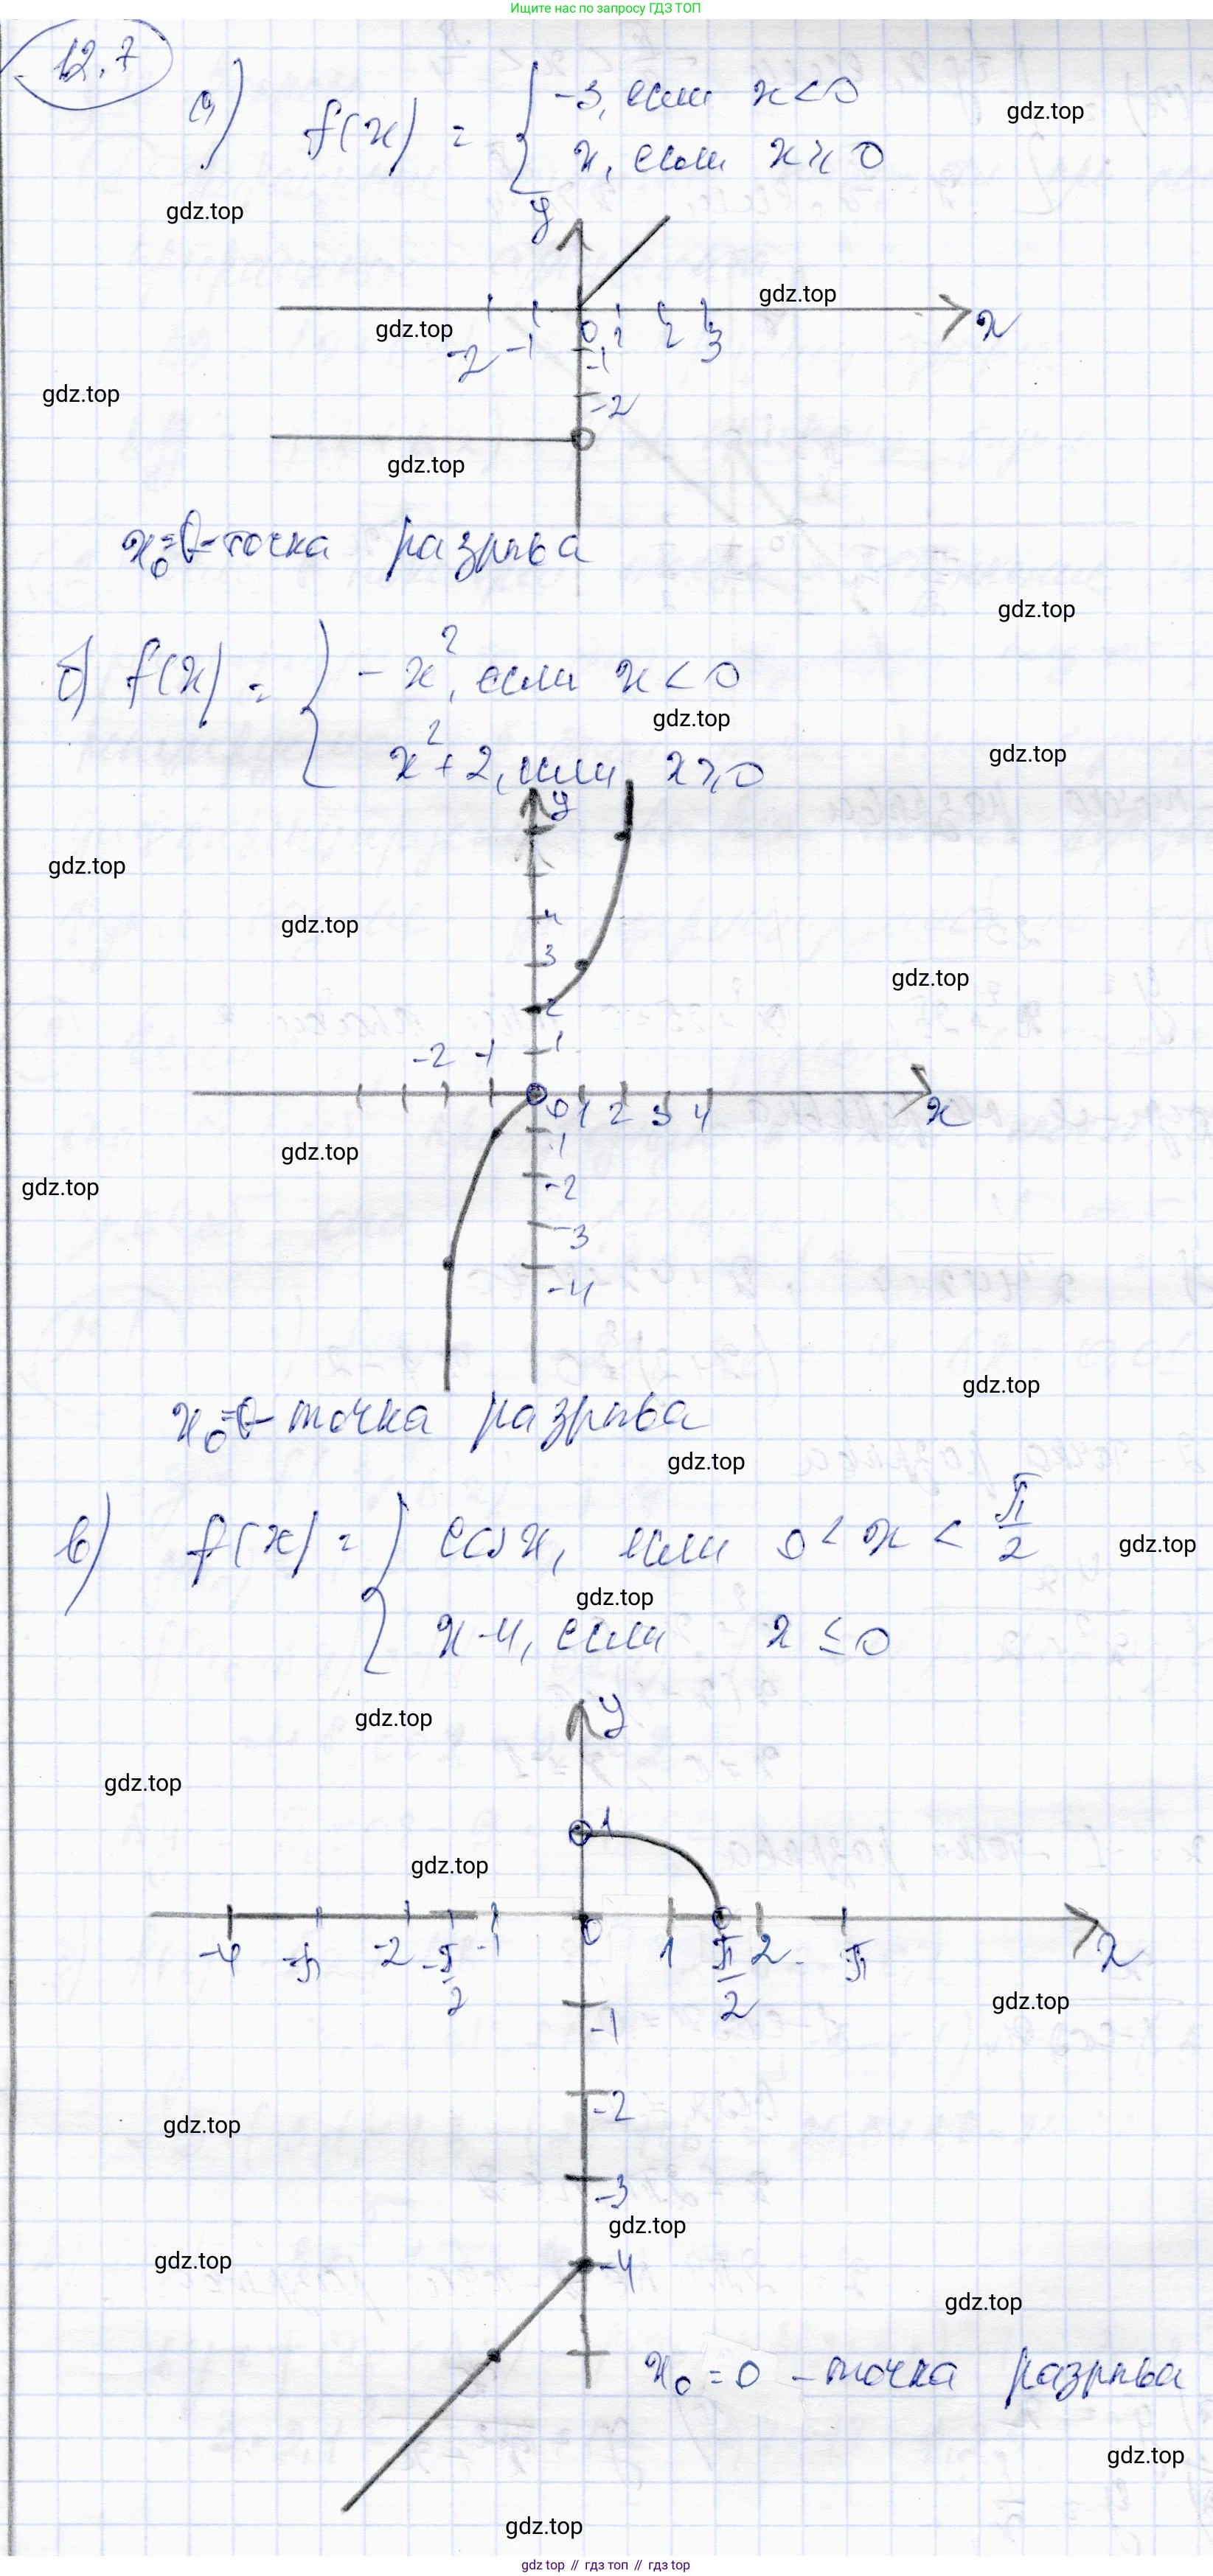 Ищите нас по запросу ГДЗ ТОП
12.7
а) f(x) = { -3, если x < 0
x, если x ≥ 0
gdz.top
gdz.top
y
gdz.top
gdz.top
-2 -1 0 1 2 3 x
-1
gdz.top
-2
gdz.top
x₀=0 - точка разрыва
gdz.top
б) f(x) = { -x², если x < 0
gdz.top
x² + 2, если x ≥ 0
gdz.top
y
gdz.top
4
gdz.top
3
gdz.top
2
1
-2 -1
0 1 2 3 4 x
-1
gdz.top
gdz.top
-2
-3
-4
gdz.top
x₀=0 - точка разрыва
gdz.top
в) f(x) = { cos x, если 0 < x < π/2
gdz.top
gdz.top
x-4, если x ≤ 0
gdz.top
y
gdz.top
1
gdz.top
-4 -π -2 -π/2 -1 0 1 π/2 2 π x
gdz.top
-1
-2
gdz.top
-3
gdz.top
gdz.top
-4
gdz.top
x₀ = 0 - точка разрыва
gdz.top
gdz.top
gdz top // гдз топ // гдз top